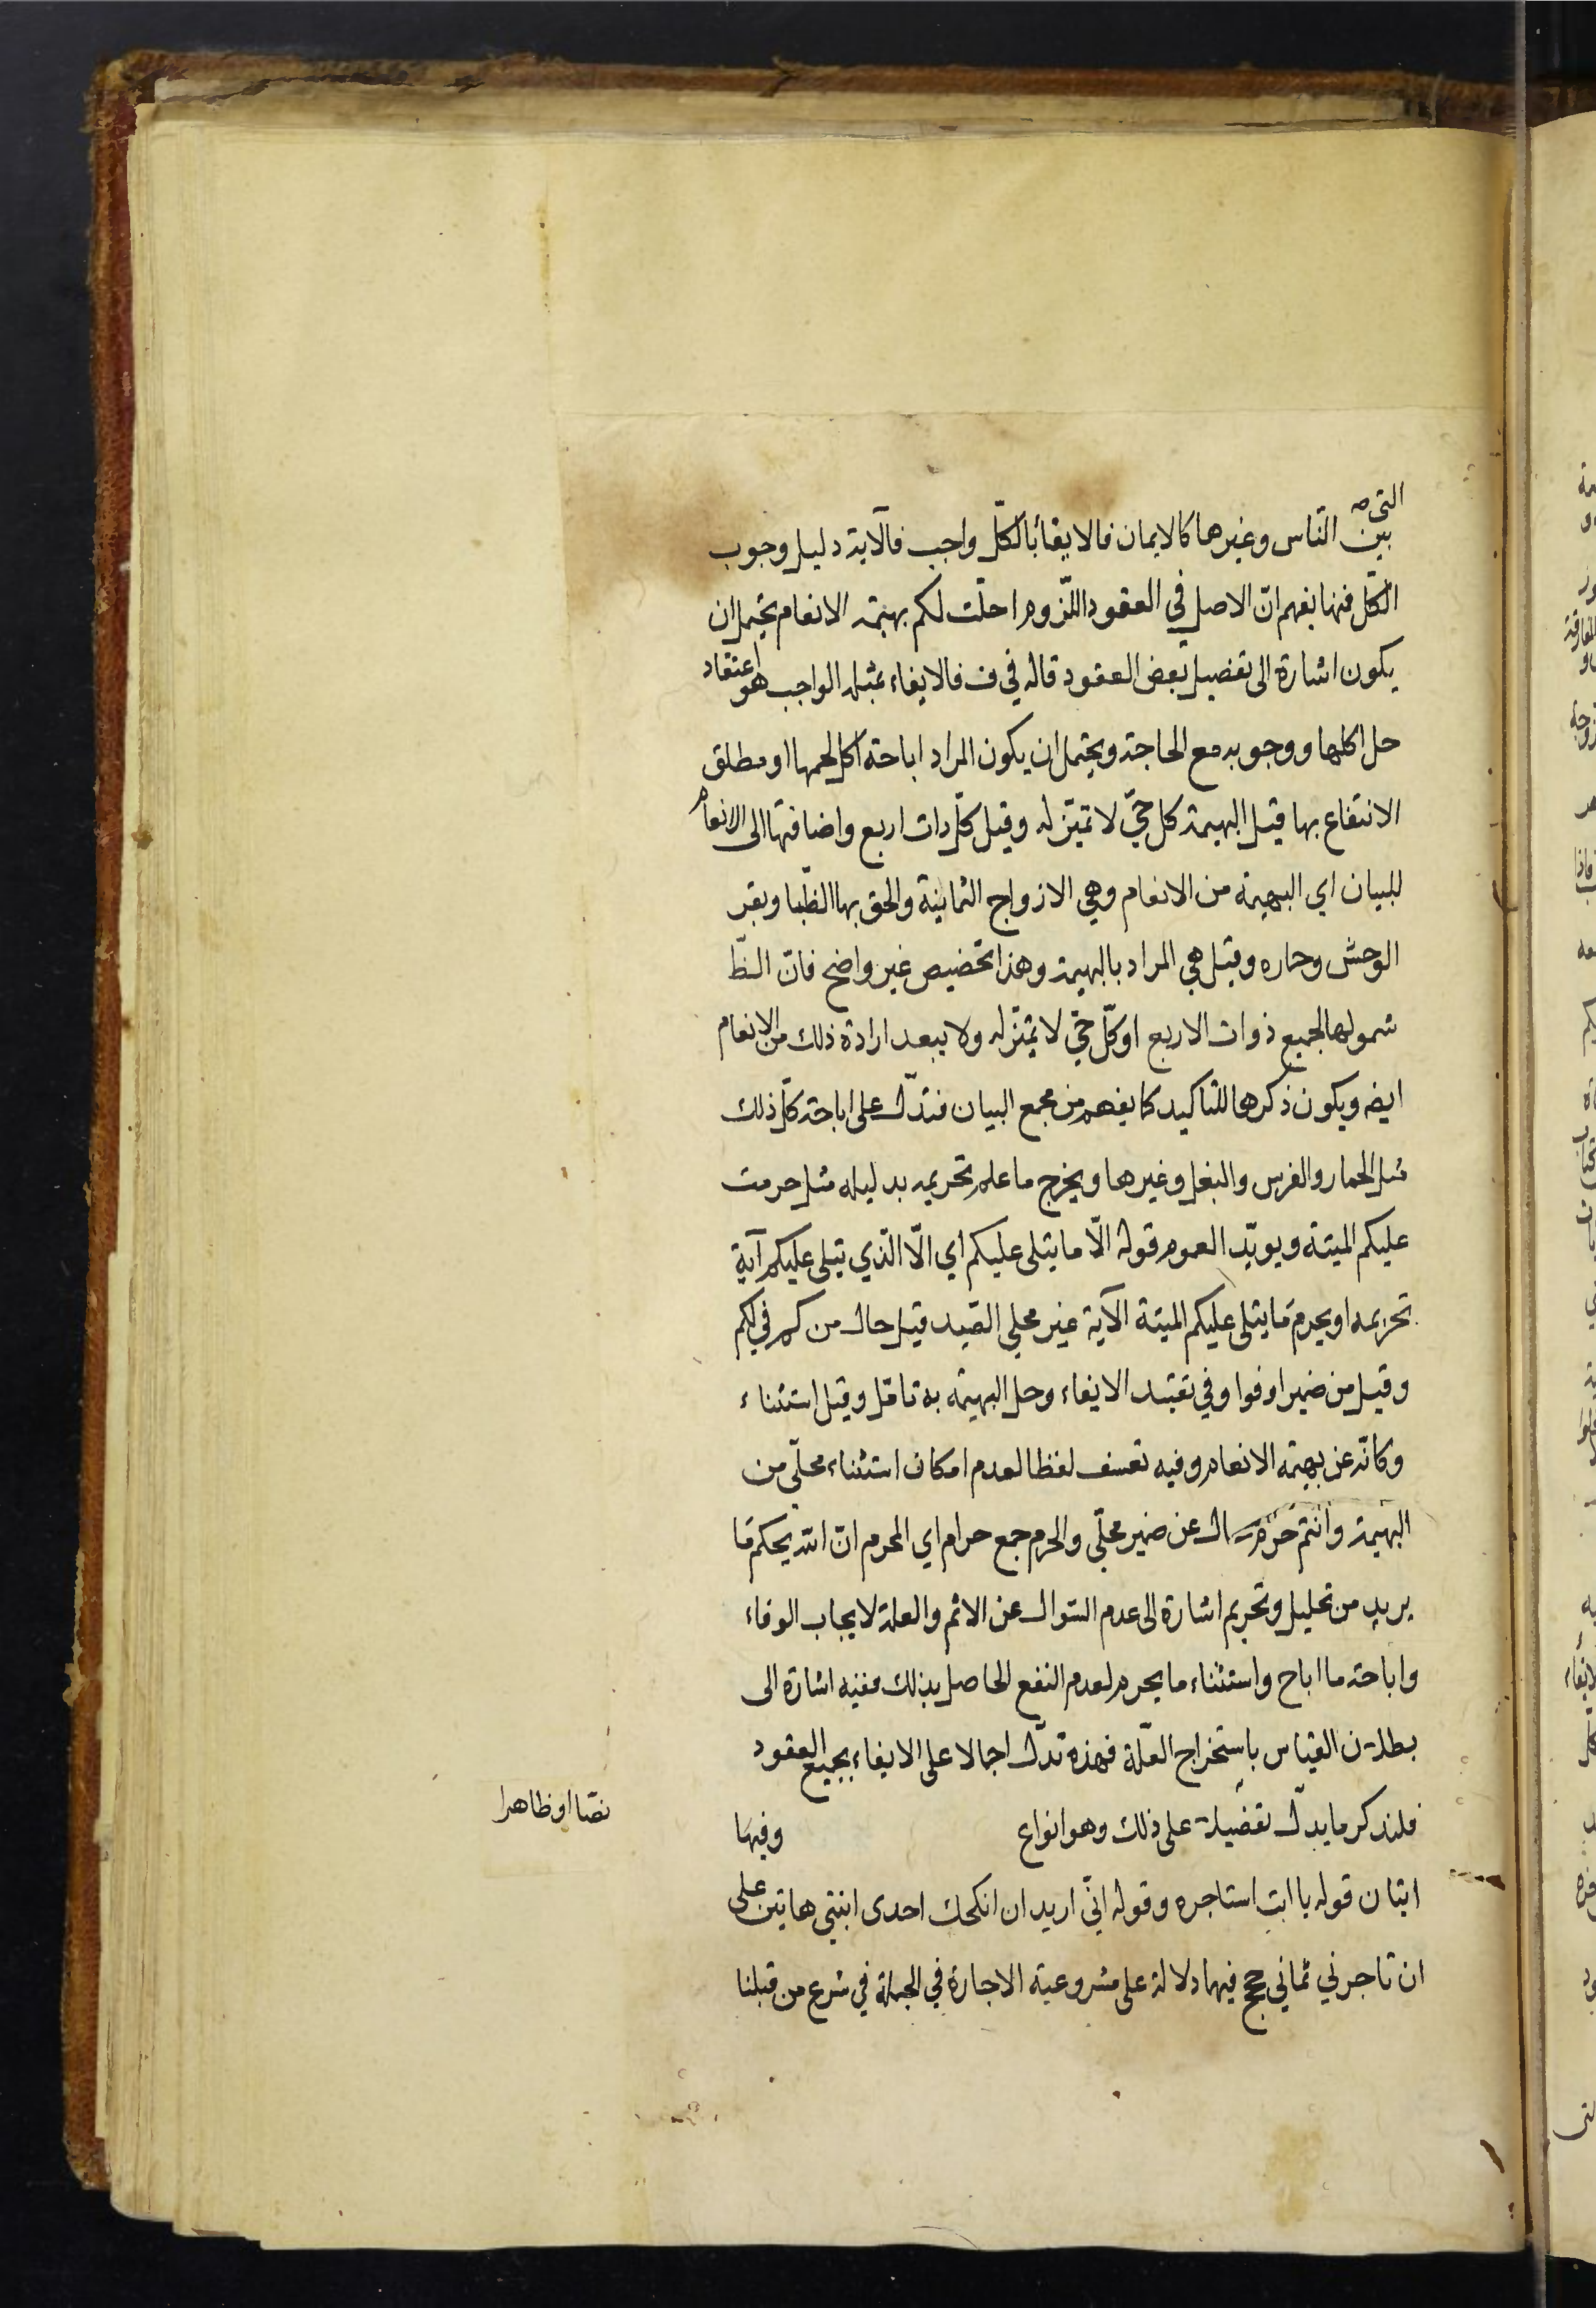 التي صه
بين الناس وغيرها كالايمان فالايفاء بالكلّ واجب فالآية دليل وجوب
الكلّ فمنها يفهم انّ الاصل في العقود اللّزوم احلّت لكم بهيمة الانعام يحتمل ان
يكون اشارة الى تفصيل بعض العقود قاله في ف فالايفاء بمثله الواجب هو اعتقاد
حل اكلها ووجوبه مع الحاجة ويحتمل ان يكون المراد اباحة اكل لحمها او مطلق
الانتفاع بها قيل البهيمة كل حيّ لا تميّز له وقيل كلّ ذات اربع واضافتها الى الانعام
للبيان اي البهيمة من الانعام وهي الازواج الثمانية والحق بها الظّبا وبقر
الوحش وحماره وقيل هي المراد بالبهيمة وهذا تخصيص غير واضح فانّ الظّ
شمولها لجميع ذوات الاربع او كلّ حيّ لا تميّز له ولا يبعد ارادة ذلك من الانعام
ايضه ويكون ذكرها للتاكيد كما يفهم من مجمع البيان فتدلّ على اباحة كلّ ذلك
مثل الحمار والفرس والبغل وغيرها ويخرج ما علم تحريمه بدليله مثل حرمت
عليكم الميتة ويويّد العموم قوله الّا ما يتلى عليكم اي الّا الّذي يتلى عليكم آية
تحريمه او يحرم ما يتلى عليكم الميتة الآية غير محلي الصّيد قيل حال من كم في لكم
وقيل من ضمير اوفوا وفي تقييد الايفاء وحل البهيمة به تامّل وقيل استثناء
وكانّه عن بهيمة الانعام وفيه تعسف لفظا لعدم امكان استثناء محلّي من
البهيمة وانتم حرم حال عن ضمير محلّي والحرم جمع حرام اي المحرم انّ الله يحكم ما
يريد من تحليل وتحريم اشارة الى عدم السّوال عن الاثم والعلة لايجاب الوفاء
واباحة ما اباح واستثناء ما يحرم لعدم النفع الحاصل بذلك ففيه اشارة الى
بطلان القياس باستخراج العلّة فهذه تدلّ اجمالا على الايفاء بجميع العقود
فلنذكر ما يدلّ تفصيلا على ذلك وهو انواع وفيها
نصّا او ظاهرا
ايتان قوله يا ابت استاجره وقوله انّي اريد ان انكحك احدى ابنتي هاتين على
ان تاجرني ثماني حجج فيهما دلالة على مشروعية الاجارة في الجملة في شرع من قبلنا